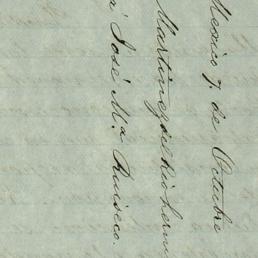 Mexico 7. de Octubre
Martinez del Rio herm
á José M.ª Ruiseco.